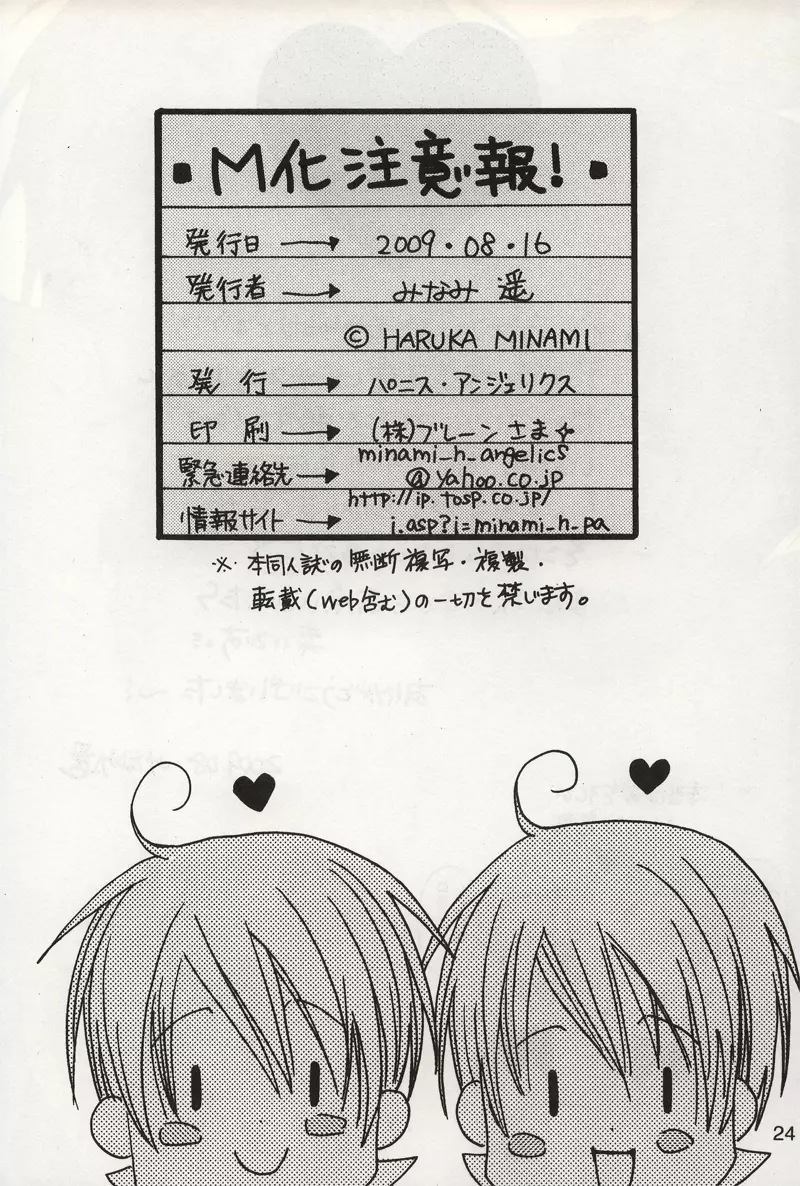 M化注意報!
発行日 → 2009.08.16
発行者 → みなみ 遥
© HARUKA MINAMI
発 行 → ハロニス・アンジェリクス
印 刷 → (株)ブレーン さま☆
緊急連絡先 → minami_h_angelics
@yahoo.co.jp
情報サイト → http://ip.tosp.co.jp/
i.asp?i=minami_h_pa
※ 本同人誌の無断複写・複製・
転載(web含む)の一切を禁じます。
24